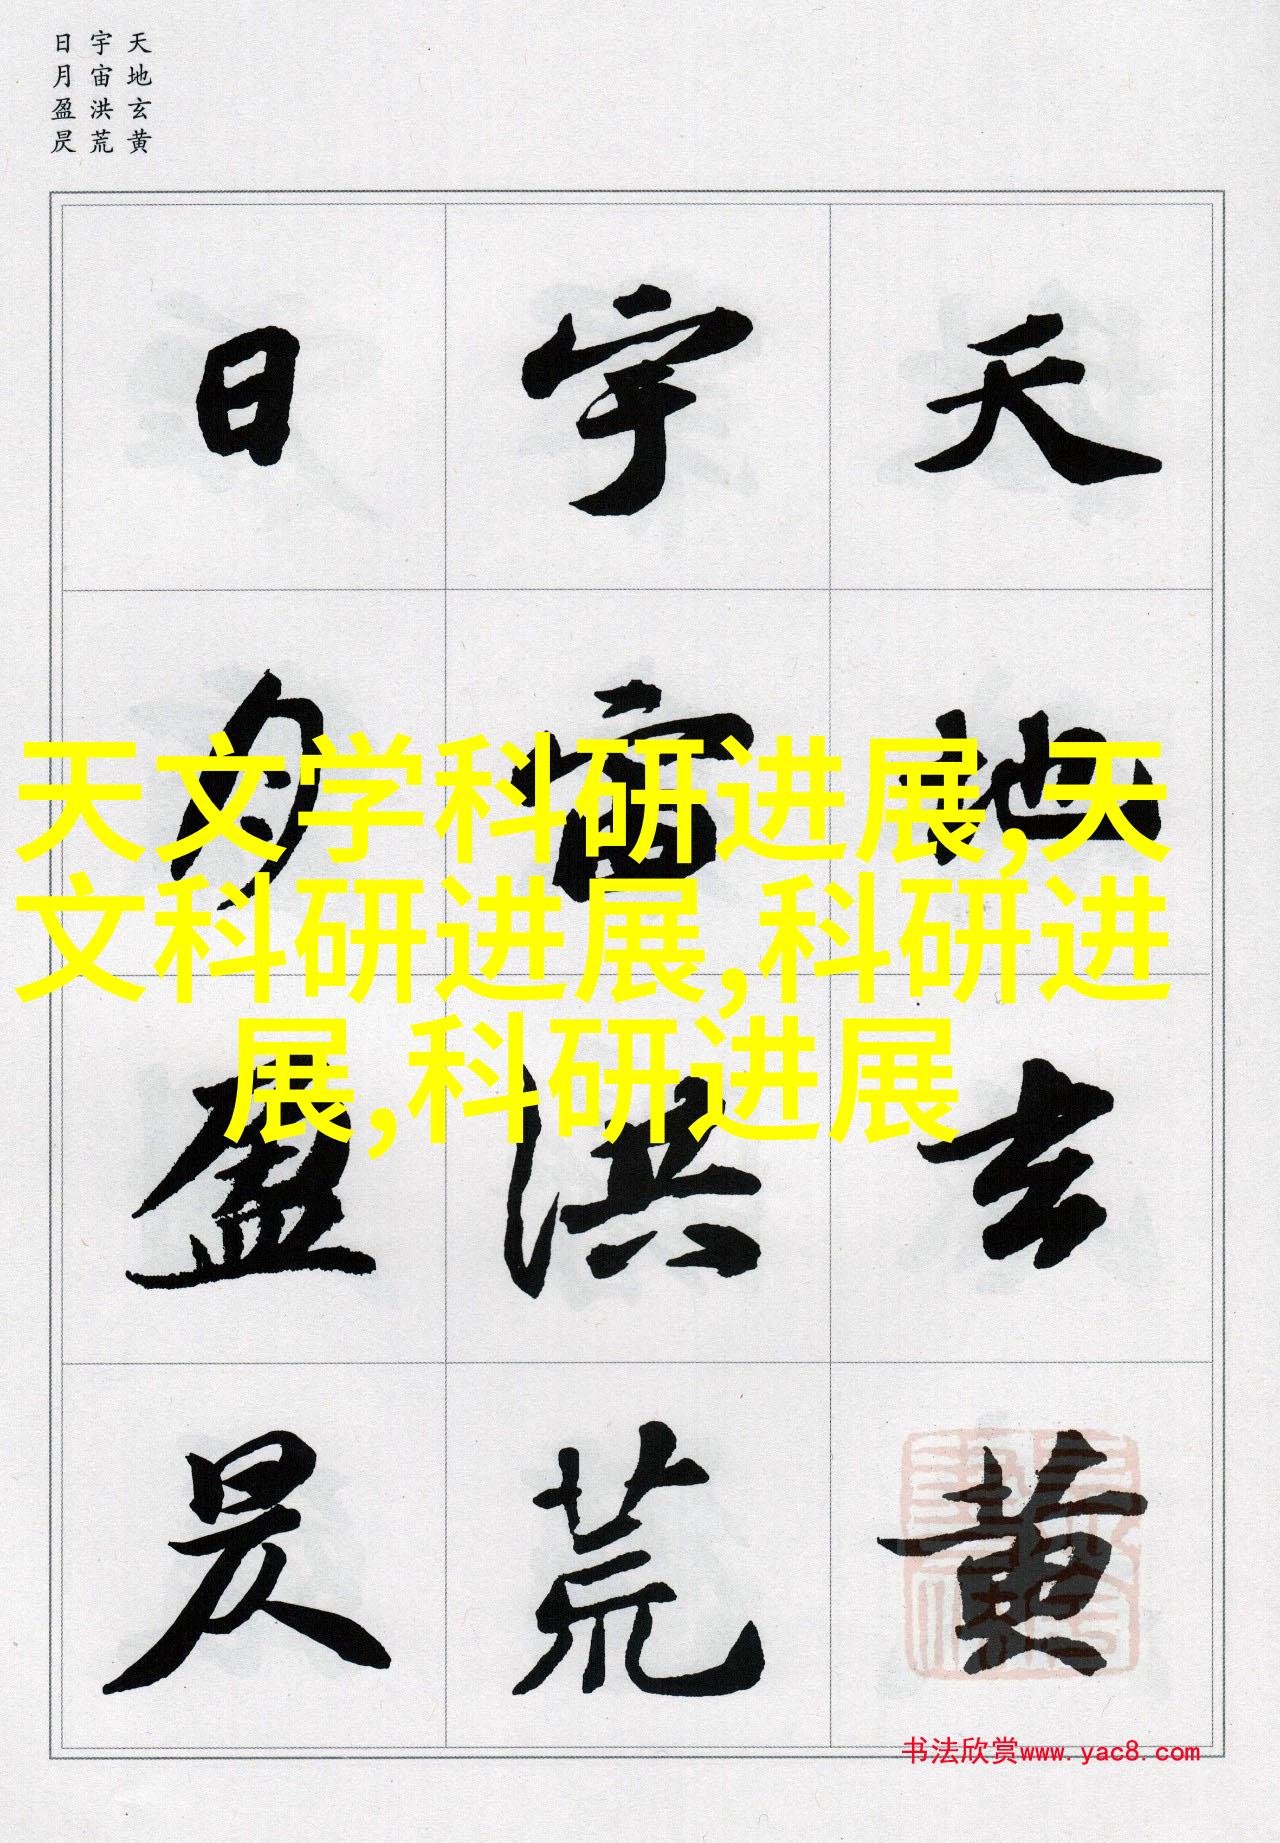 天地玄黄
宇宙洪荒
日月盈昃
天地玄黄
宇宙洪荒
日月盈昃
天文学科研进展,天
文科研进展,科研进
展,科研进展
书法欣赏www.yac8.com